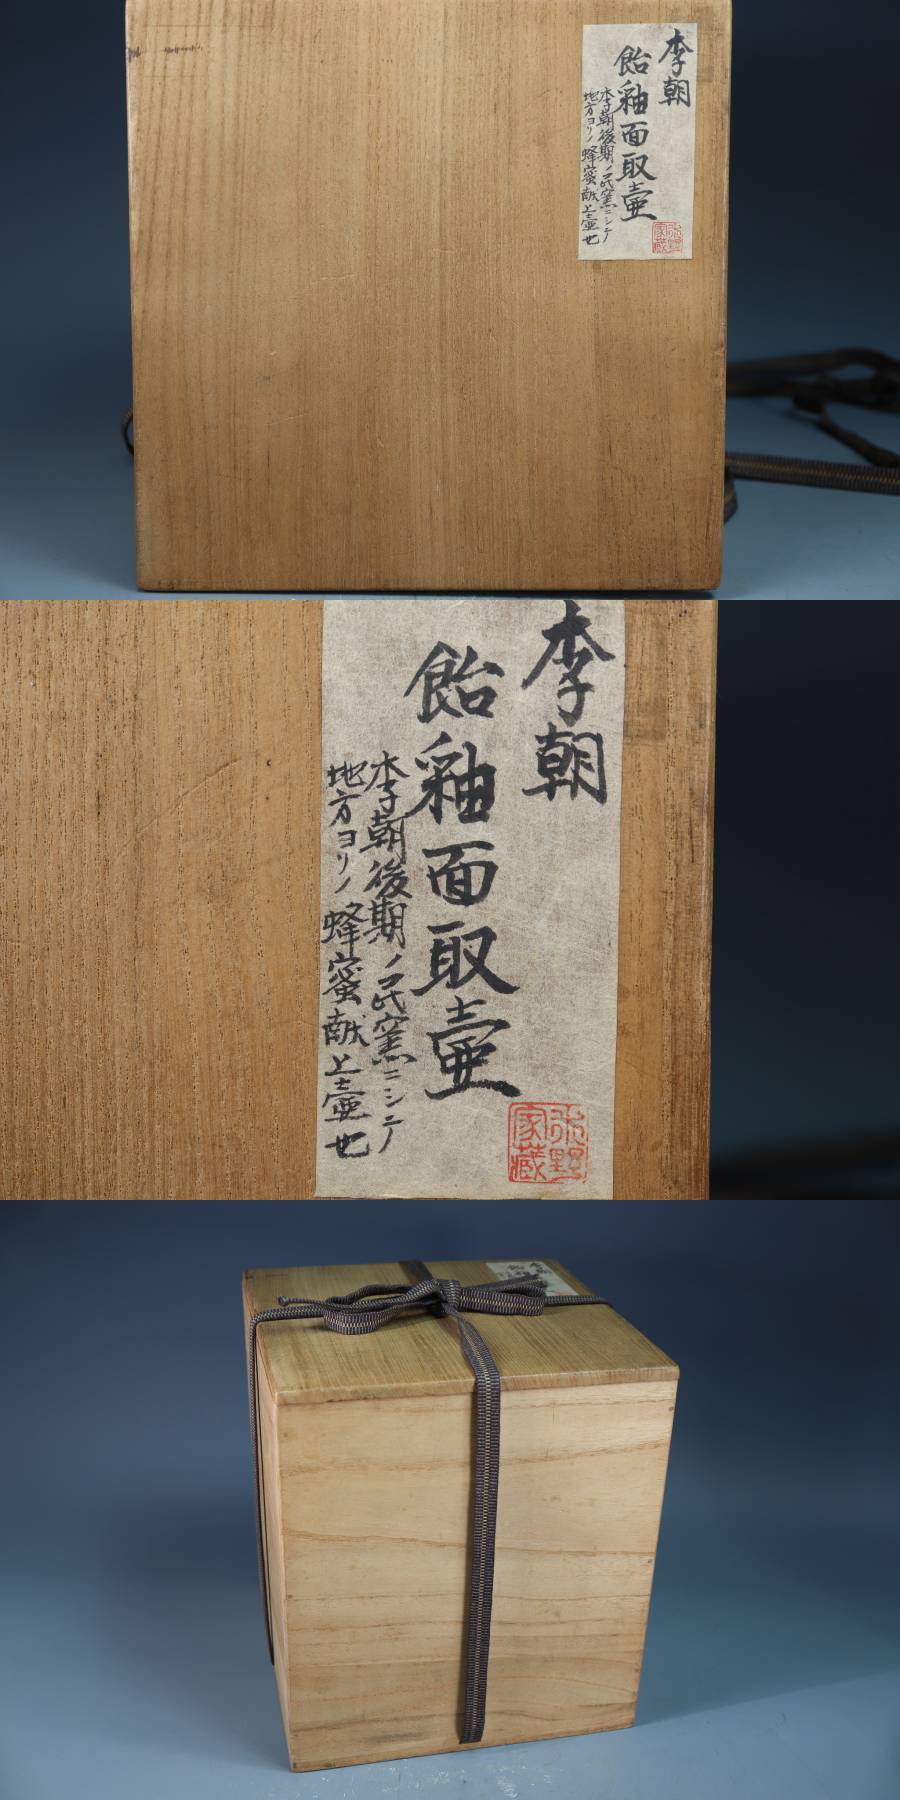 李朝
飴釉面取壷
李朝後期ノ民窯ニシテ
地方ヨリノ蜂蜜献上壷也
家蔵
李朝
飴釉面取壷
李朝後期ノ民窯ニシテ
地方ヨリノ蜂蜜献上壷也
野
家蔵